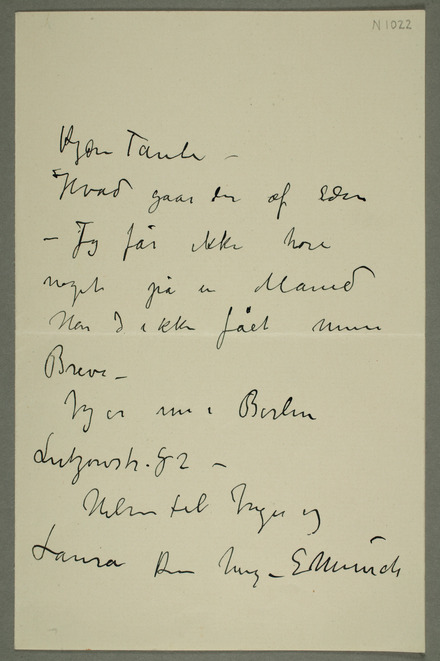 N 1022
Kjære Tante –
Hvad gaar der af Eder
– Jeg får ikke høre
noget på en Maaned
Har I ikke fået mine
Breve –
Jeg er nu i Berlin
Lutzowstr. 82 –
Hilsen til Inger og
Laura Din heng. – E Munch